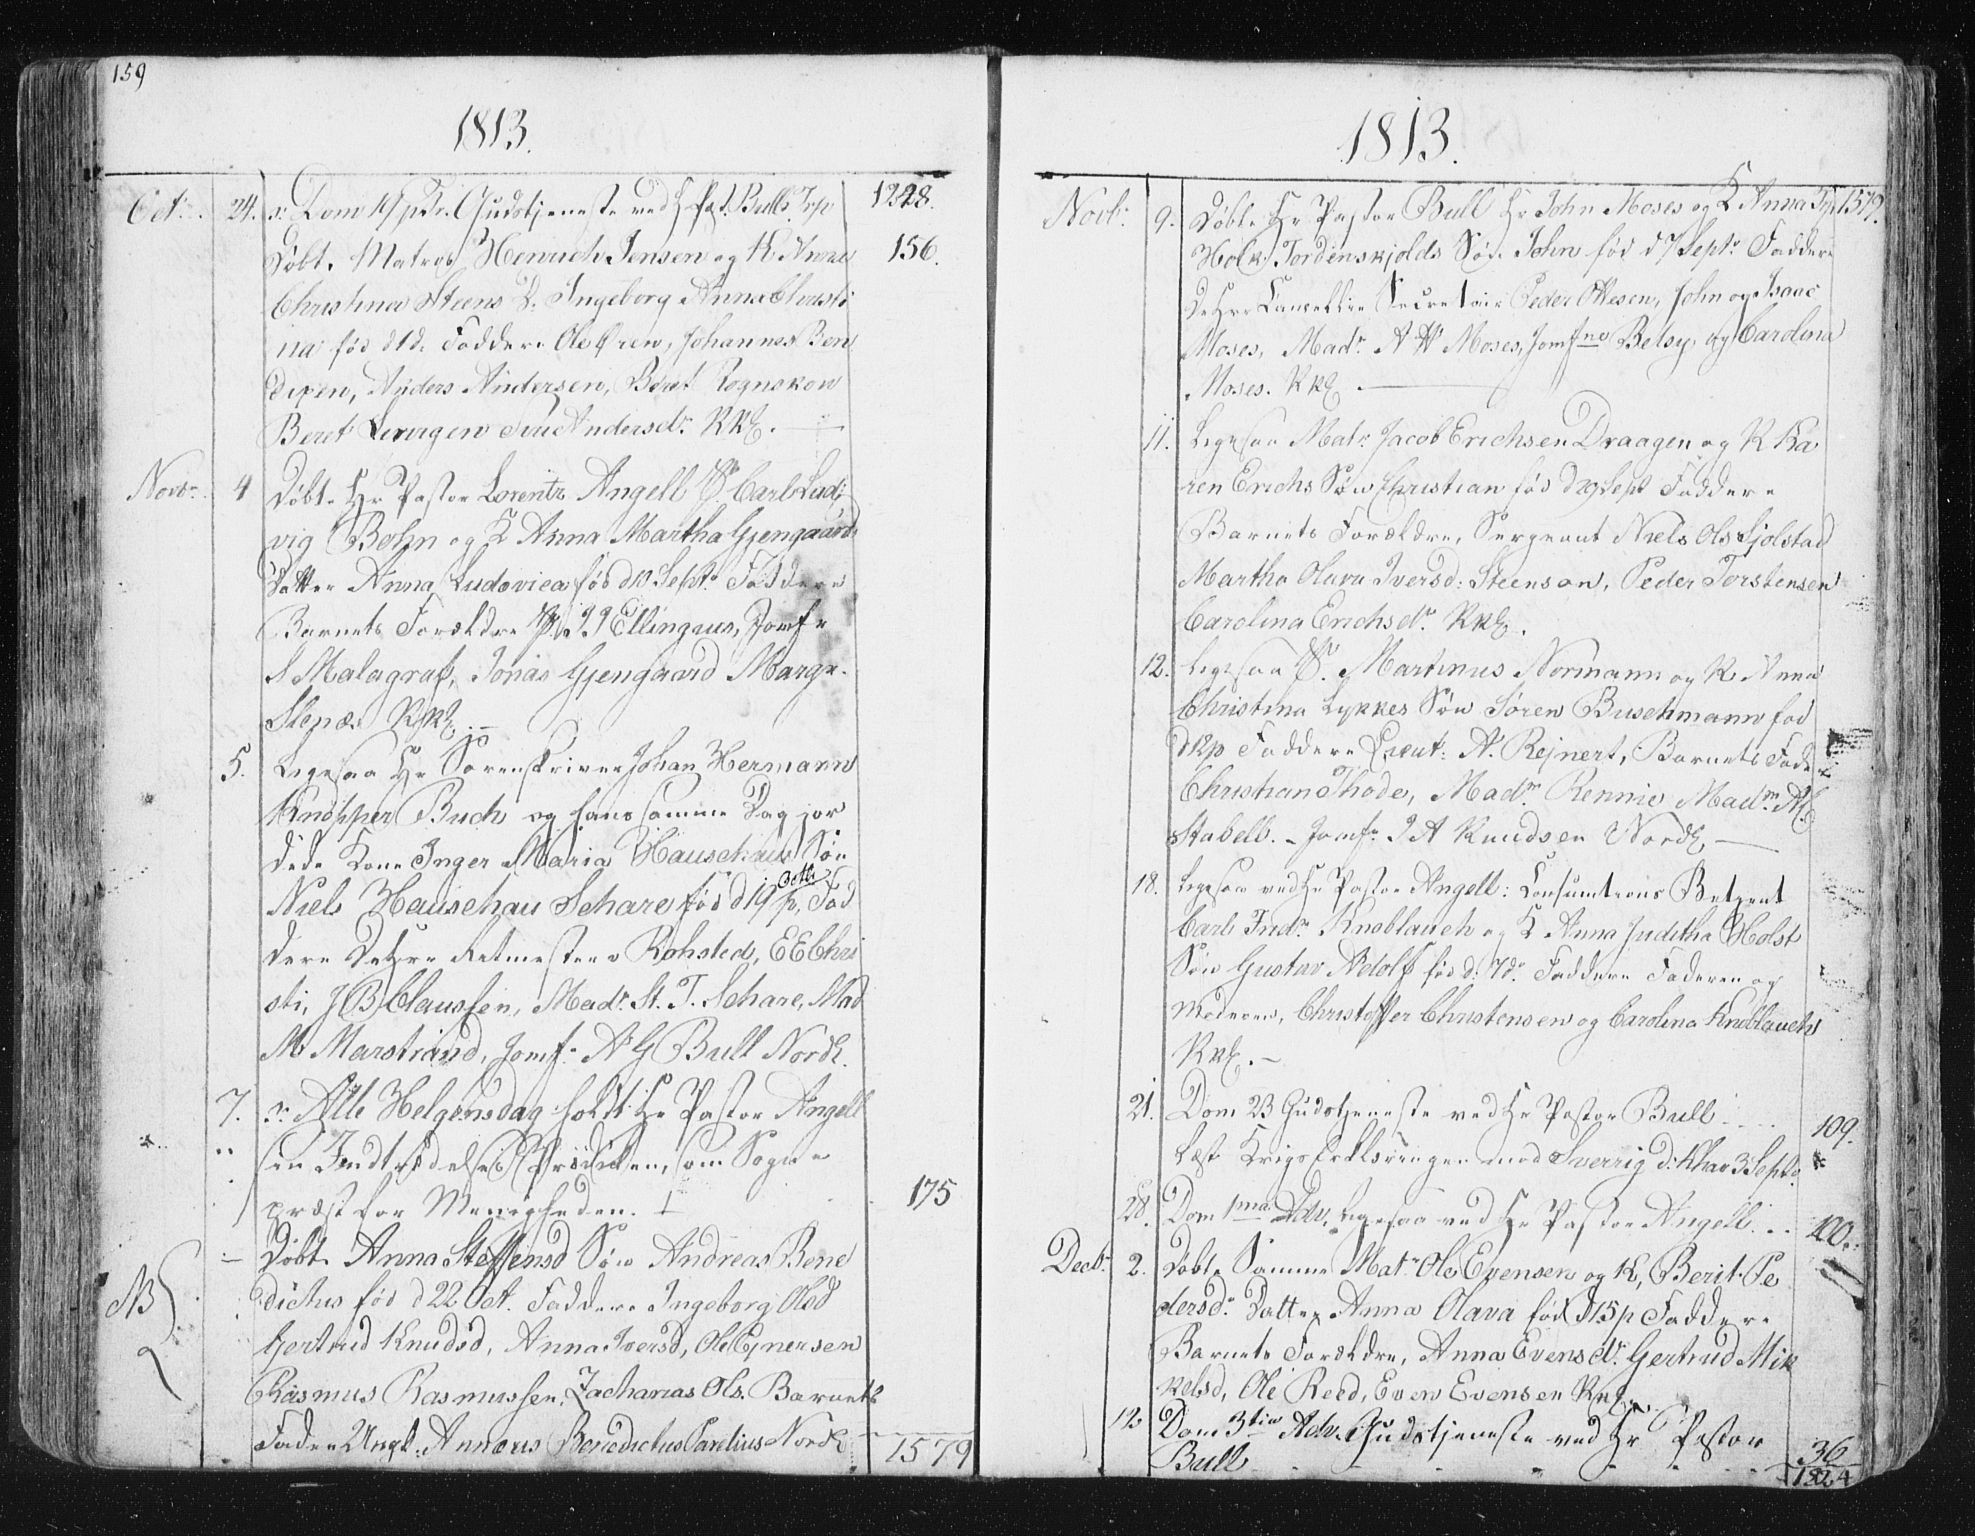 159
1813.
Oct. 24. Dom 19 p Tr. Gudstjeneste ved H Past. Bull. 1248.
Døbt. Matros Henrich Jensen og K Anne 156.
Christina Steens D. Ingeborg Anna Christi
na fød d 1 d. Faddere Ole Øren, Johannes Ben
dixen, Anders Andersen, Beret Rognskow
Beret Andersdr. RKE.
Novbr. 4 Døbt. Hr Pastor Lorentz Angell Carl Lud
vig Bohn og K Anna Martha Gjengaards
Datter Anna Ludovica fød d 10 Septr. Faddere
Barnets Forældre Ellingius, Jomfr
S Malagraf, Jonas Gjengaard Margr.
Slepæs RKE.
5. Ligesaa Hr Sorenskriver Johan Hermann
Knopper Buch og hans samme Dag jor
dede Kone Inger Maria Hauschaus Søn
Niels Hauschau Schare fød d 19 p. Octbr Fad
dere DeHrr Ratmester Rohsted, E E Chri
sti, J B Claussen, Madr. St. T. Schare, Mad
M Marstrand, Jomfr A G Bull Nordl.
7. Alle Helgensdag holdt Hr Pastor Angell
sin Indtrædelses Prædiken, som Sogne
præst for Menigheden. 175
Døbt Anna Steffensd Søn Andreas Bene
dictus fød d 22 Oct. Faddere Ingeborg Olsd
NB Gertrud Knudsd, Anna Iversd, Ole Ejnersen
Rasmus Rasmussen, Zacharias Ols. Barnets
Fader Ungk. Annæus Benedictus Parelius Nordl
1579
1813.
Novb: 9. Døbt Hr Pastor Bull Hr John Moses og K Anna 1579.
Holck Tordenskjolds Søn John fød d 7 Septr. Faddere
DeHrr Cancellie Secretair Peder Ottesen, John og Isaac
Moses, Madr. A W Moses, Jomfrue Betsy og Carolina
Moses. RKE.
11. Ligesaa Matr. Jacob Erichsen Draagen og K Ka
ren Erichs Søn Christian fød d 29 Sept Faddere
Barnets Forældre, Sergeant Niels Ols Sjolstad
Martha Olava Iversd: Steensen, Peder Torstensen
Carolina Erichsdr. RKE.
12. Ligesaa Martinus Normann og K Anna
Christina Lykkes Søn Søren Buschmann fød
d 12 p Faddere Lieut: A. Rejnert, Barnets Fader
Christian Thode, Madm Rennie Madm
Stabell. Jomfr. I A Knudsen Nordl.
18. Ligesaa ved Hr Pastor Angell: Consumtions Betjent
Carl Fridr. Knoblauch og K Anna Juditha Holst
Søn Gustav Adolf fød d. 7 dr. Faddere Faderen og
Moderen, Christoffer Christensen og Carolina Knoblauch
RKE.
21. Dom 23 Gudstjeneste ved Hr Pastor Bull 109.
Læst Krigs Erklæringen mod Sverrig d. Khav 3 Septr.
28. Dom 1ma Adv. Ligesaa ved Hr Pastor Angell 100.
Decbr. 2. Døbt Samme Matr. Ole Evensen og K, Berit Pe
dersdr. Datter Anna Olava fød d 15 p Faddere
Barnets Forældre, Anna Evensdr. Gertrud Mik
kelsd, Ole Reed, Even Evensen RKE
12 Dom 3tia Adv. Gudstjeneste ved Hr Pastor
Bull 36
1824